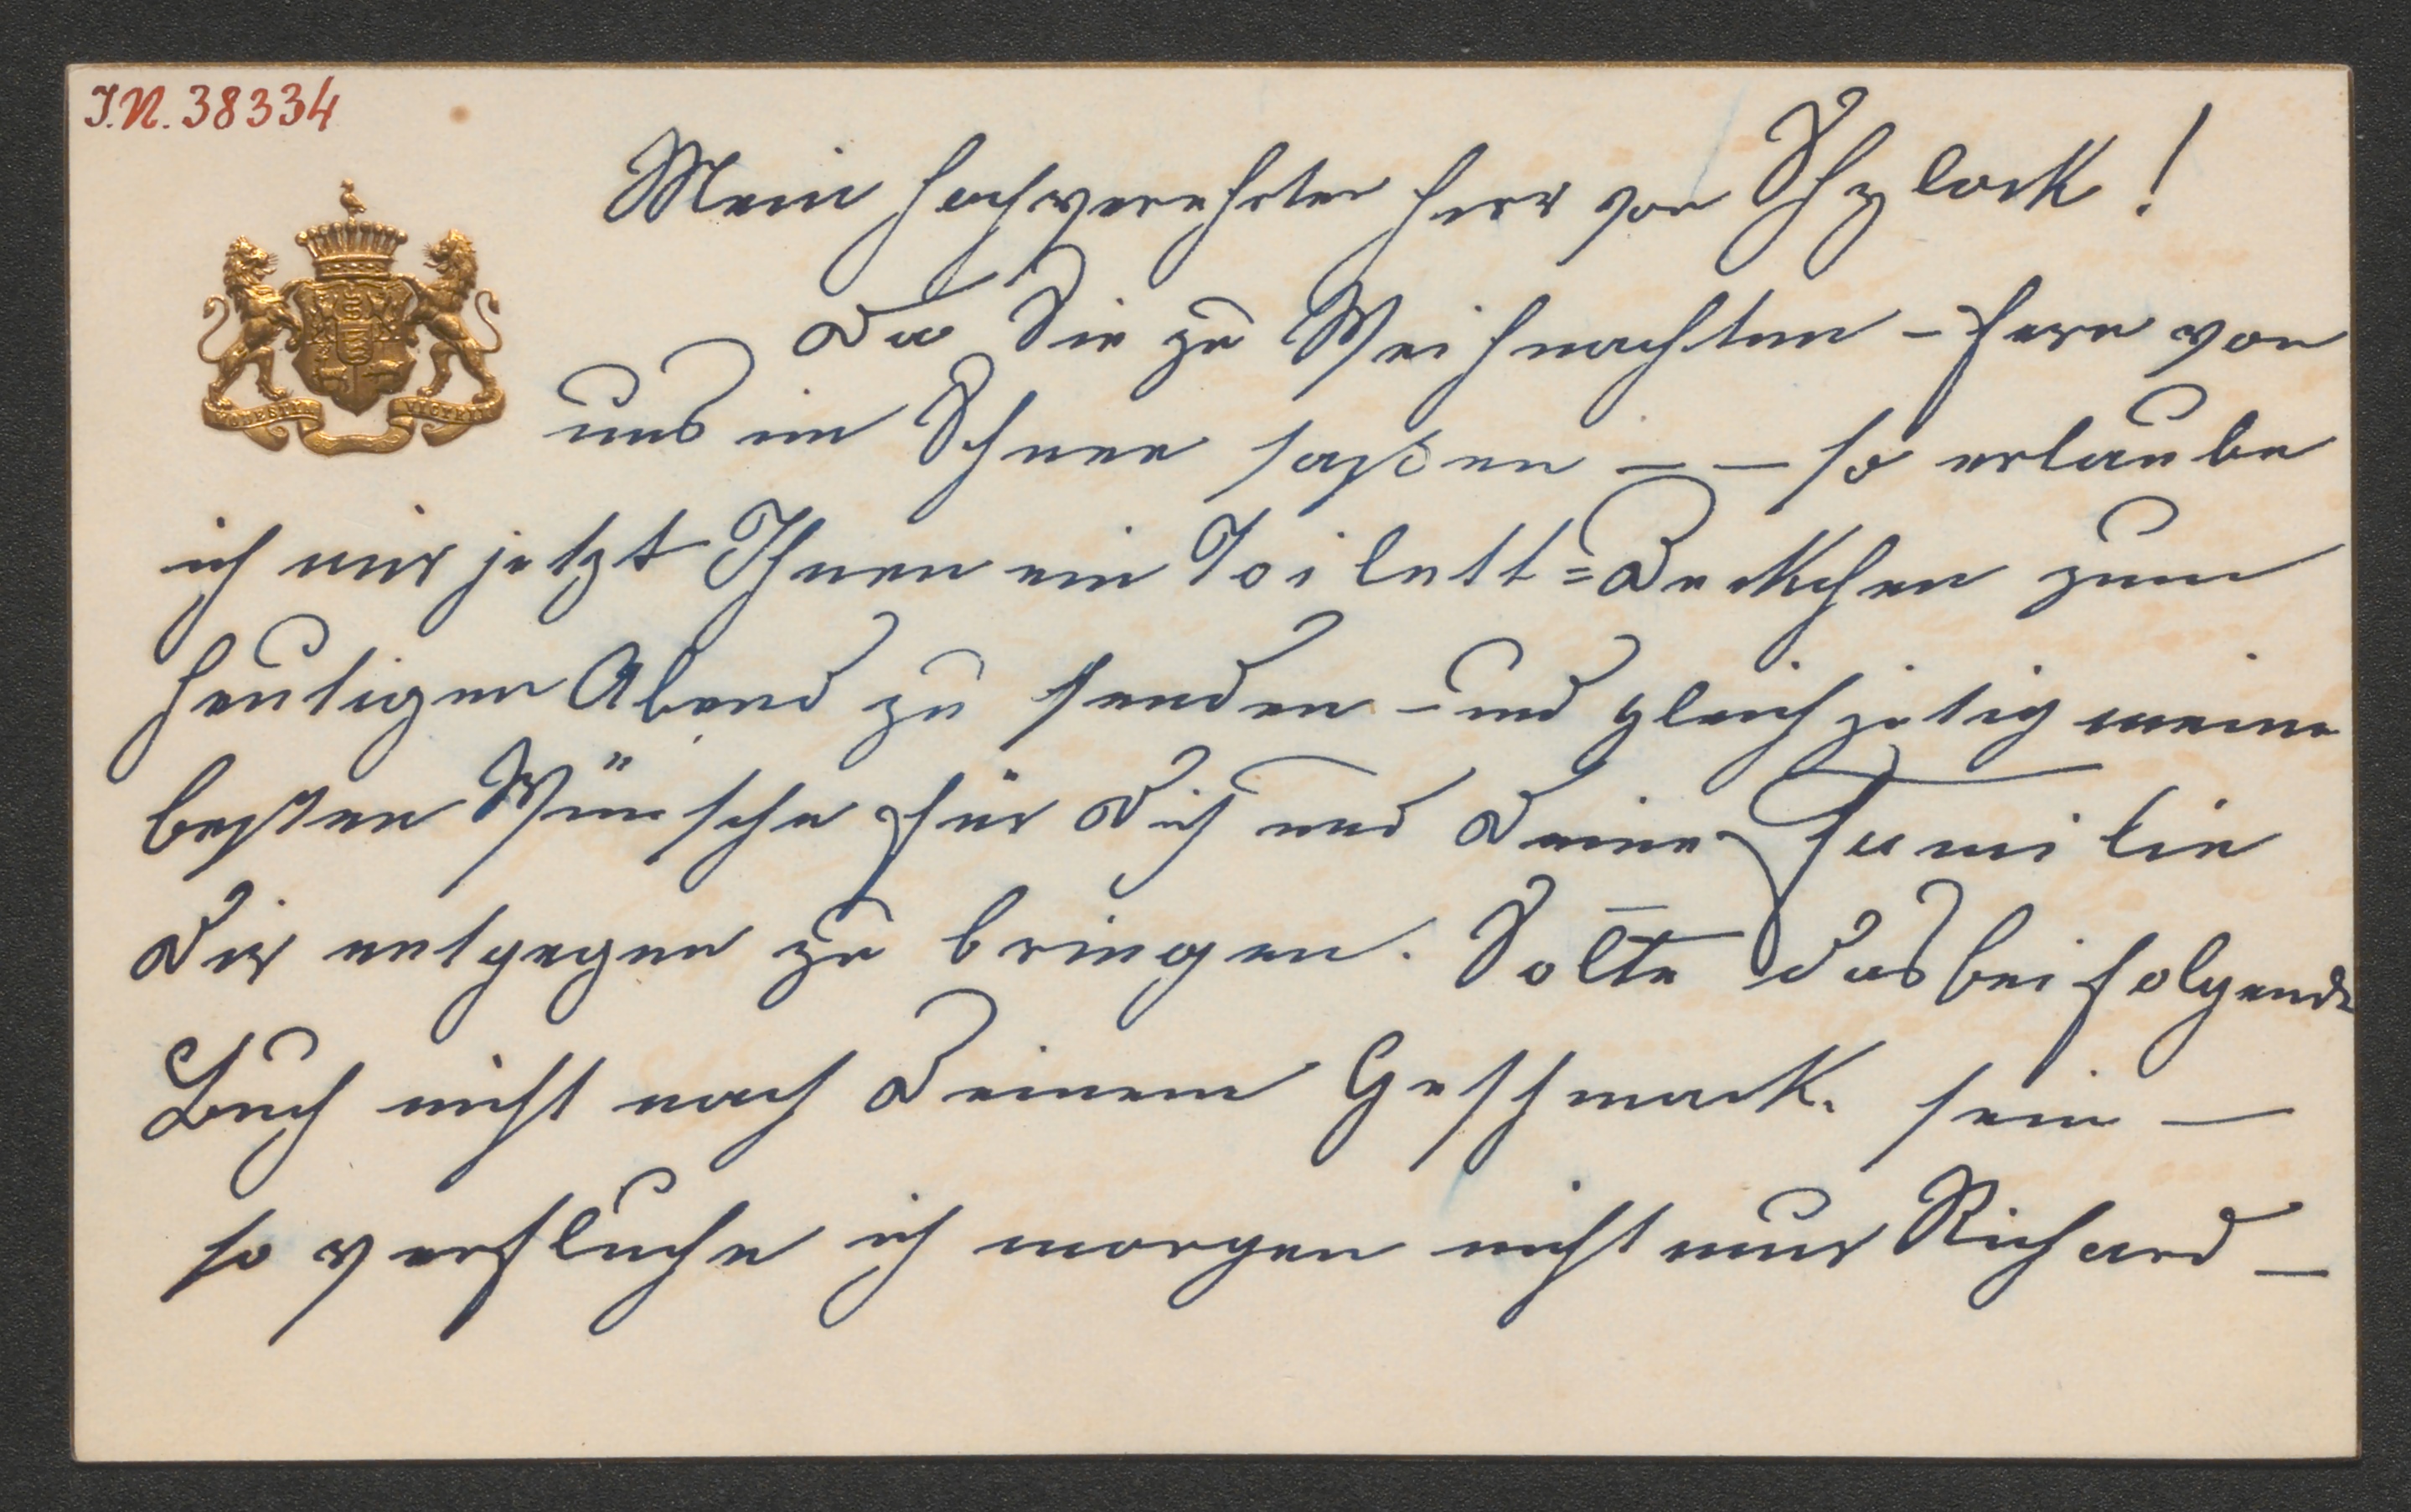 I.N. 38334
Mein hochverehrter Herr von Shylock!
Da Sie zu Weihnachten – fern von
uns im Schnee saßen – – so erlaube
ich mir jetzt Ihnen ein Toilett=Deckchen zum
heutigen Abend zu senden – und gleichzeitig meine
besten Wünsche für Dich und Deine Familie
Dir entgegen zu bringen. Sollte das beifolgende
Buch nicht nach Deinem Geschmack sein –
so verfluche ich morgen nicht nur Richard –